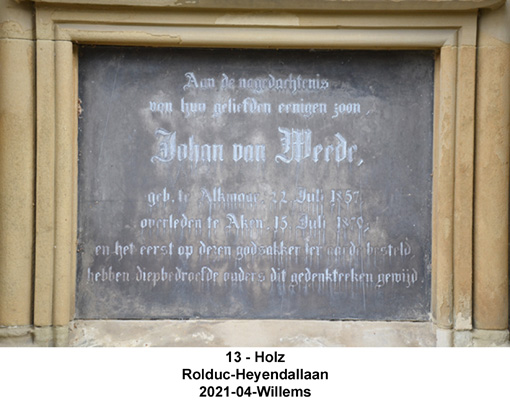 Aan de nagedachtenis
van hun geliefden eenigen zoon
Johan van Weede,
geb. te Alkmaar 22 Juli 1857,
overleden te Aken, 15 Juli 1879,
en het eerst op dezen godsakker ter aarde besteld
hebben diepbedroefde ouders dit gedenkteeken gewijd.
13 - Holz
Rolduc-Heyendallaan
2021-04-Willems